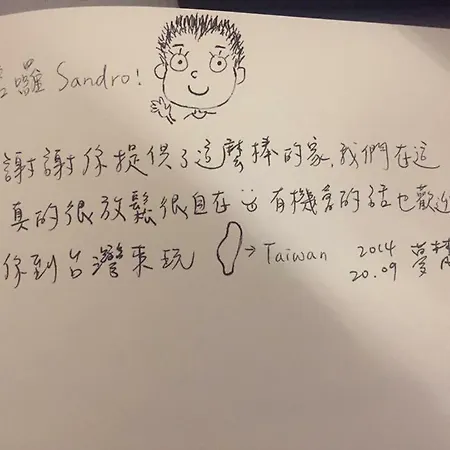 哈囉 Sandro!
謝謝你提供了這麼棒的家,我們在這
真的很放鬆很自在 有機會的話也歡迎
你到台灣來玩 → Taiwan 2014
20.09 夢